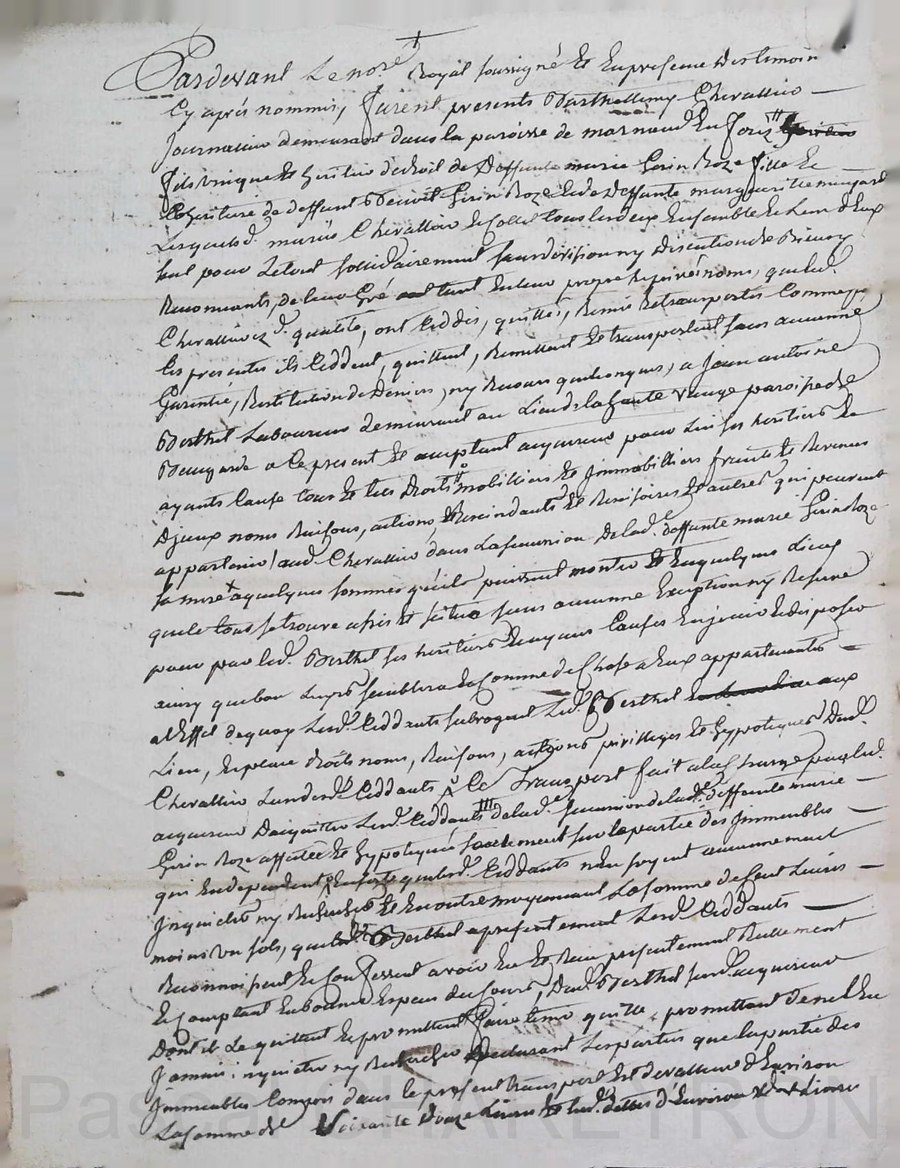 Pardevant Le no.re Royal soussigné Et En presence Des temoin
Cy après nommés, furent presents Barthellemy Chevallier
Journallier demeurant dans la paroisse de marnand En forez
fils unique Et heritier de droit de Deffunte marie Gerin Roze fille Et
Coheritiere de deffunt Benoit Gerin Roze Et de Deffunte marguerite
Lesquels d. mariés Chevallier Et tous les deux Ensemble Et L'un d'Eux
seul pour Le tout sollidairement sans division ny Discution de Biens y
Renonçants, de leur Gré Et tant En leur propre Et privé noms, que lad.
Chevallier qualité, ont Ceddés, quittés, Remis Et transportés Comme par
les presentes ils Ceddent, quittent, Remettent Et transportent sans aucunne
Garentie, Restitution de Deniers, ny Recours quelconques, a Jean antoine
Berthet Laboureur demeurant au Lieu de la paroisse de
a Ce present Et acceptant acquereur pour Lui ses heritiers Et
ayants Cause tous Et tels Droits mobiliers Et Immobilliers fruits Et Revenus
D'jceux noms Raisons, actions Rescindants Et Rescisoires Et autres qui peuvent
appartenir aud. Chevallier dans La succession De lad. deffunte marie Gerin Roze
sa mere a quelques sommes qu'ils puissent monter Et En quelques Lieux
que le tout se trouve assis Et situé sans aucunne Exception ny Reserve
pour par led. Berthet ses heritiers Et ayants Causes En jouir Et disposer
ainsy que bon Leur semblera Et Comme de Chose a Eux appartenantes
a L'Effet de quoy Lesd. Ceddants subrogent Led. Berthet aux
Lieu, Et place droits noms, Raisons, actions privilleges Et hypoteques Dud.
Chevallier Ceddants Ce Transport fait a la Charge par led.
acquereur D'acquitter Lesd. Ceddants de lad. succession de lad. deffunte marie
Gerin Roze affectée Et hypotequée seulement sur la partie des Immeubles
qui En dependent En sorte que lesd. Ceddants n'En soyent aucunnement
Inquietés ny Recherchés Et En outre moyennant La somme de Cent Livres
moins un sols, que led. Berthet a presentement Lesd. Ceddants
Reconnoissent Et Confessent avoir Eu Et Reçu presentement Réellement
Et Comptant En bonnes Especes du Cours, Dud. Berthet susd. acquereur
Dont ils Le quittent Et promettent faire tenir quitte promettant de ne L'En
Jamais inquieter ny Rechercher Declarant Les parties que la partie des
Immeubles Compris dans le present transport Est de valleur d'Environ
La somme de Soixante Douze Livres Et les d. dettes d'Environ Livres
Pascal CHARETRON